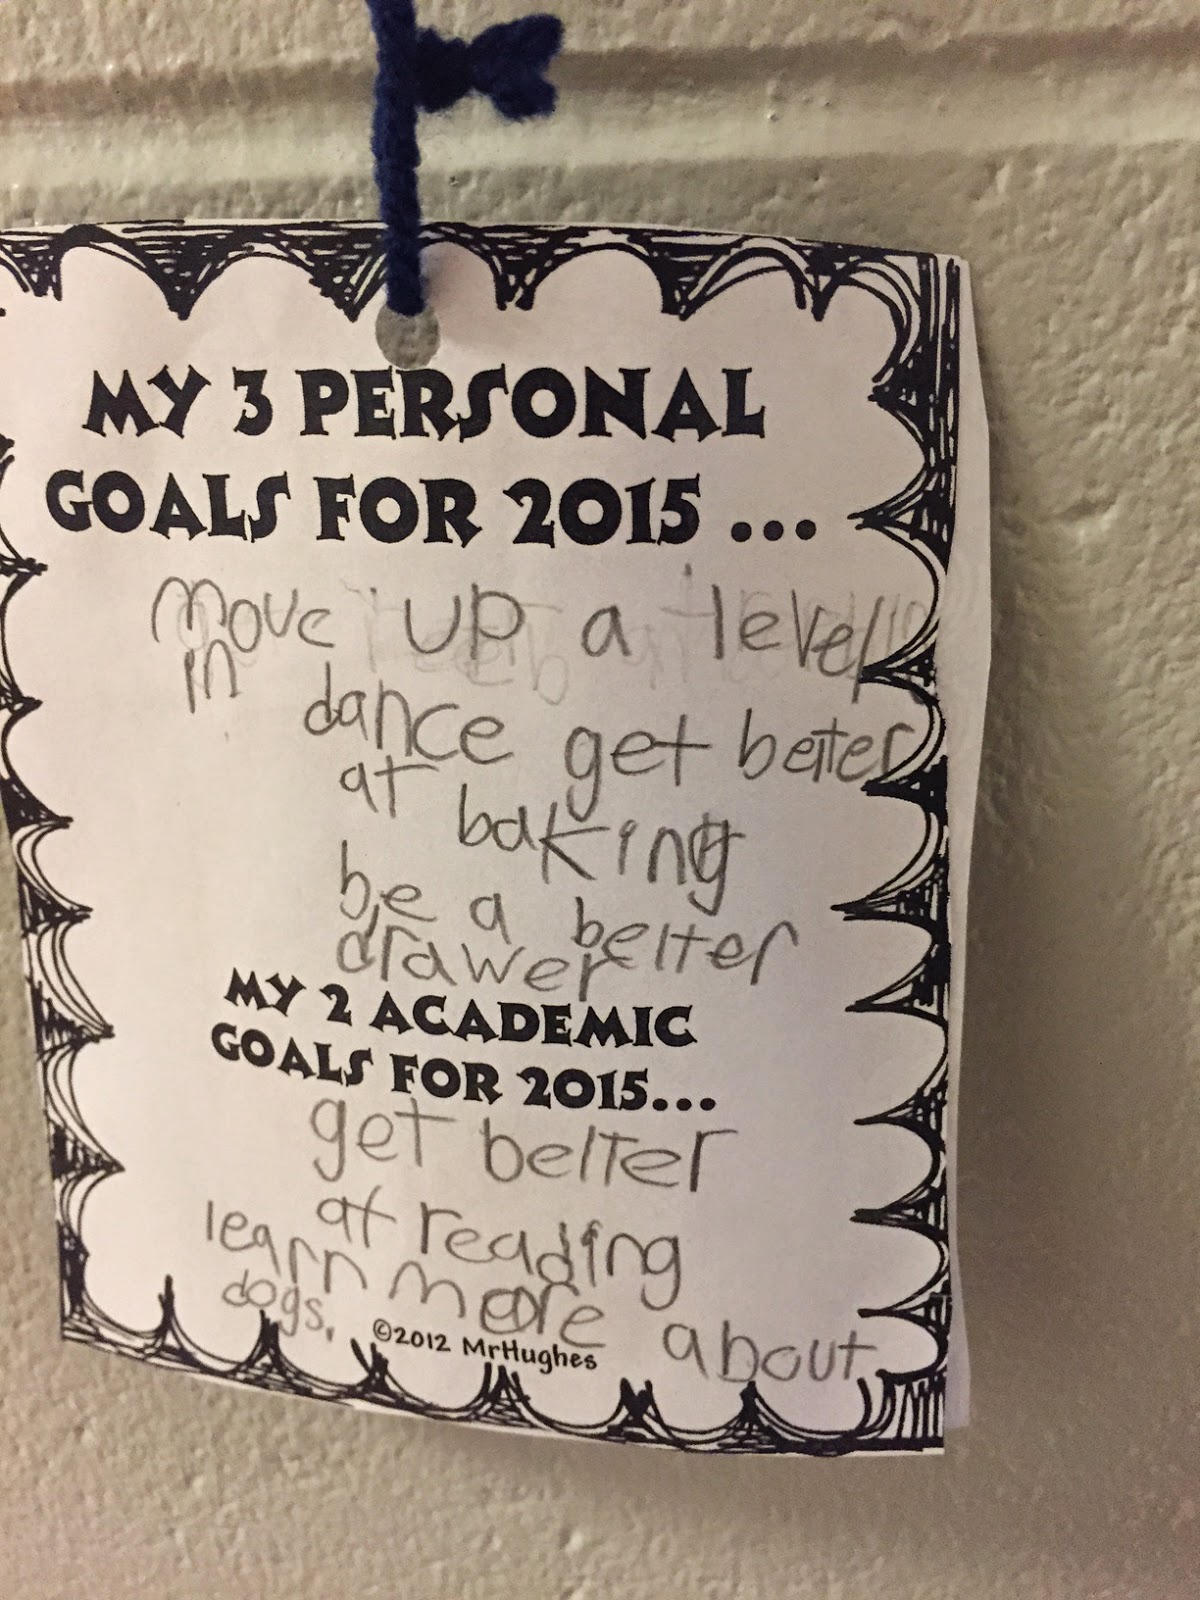 MY 3 PERSONAL
GOALS FOR 2015 ...
move up a level
in dance get better
at baking
be a better
drawer
MY 2 ACADEMIC
GOALS FOR 2015...
get better
at reading
learn more about
dogs.
©2012 MrHughes